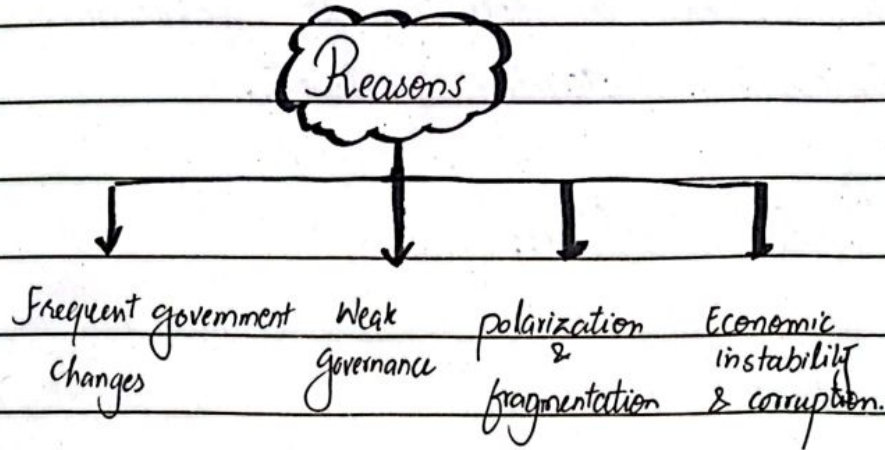 Reasons
Frequent government
changes
Weak
governance
polarization
&
fragmentation
Economic
instability
& corruption.